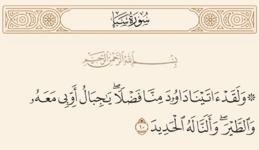 سُورَةُ سَبَإٍ
بِسْمِ اللَّهِ الرَّحْمَٰنِ الرَّحِيمِ
۞ وَلَقَدْ ءَاتَيْنَا دَاوُۥدَ مِنَّا فَضْلًا ۖ يَٰجِبَالُ أَوِّبِى مَعَهُۥ
وَالطَّيْرَ ۖ وَأَلَنَّا لَهُ الْحَدِيدَ ١٠